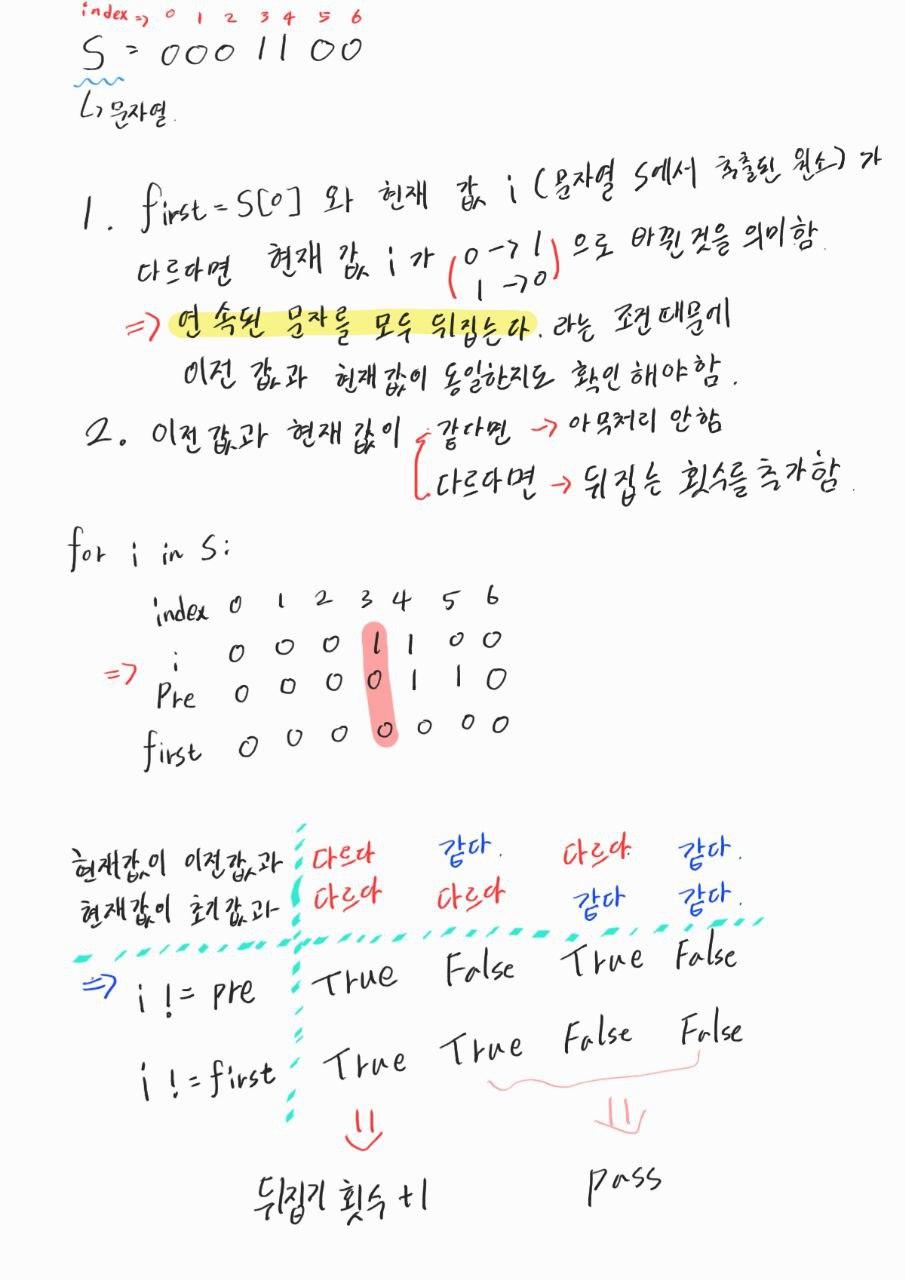 index => 0 1 2 3 4 5 6
S = 0001100
↳ 문자열.
1. first = S[0] 와 현재 값 i (문자열 S에서 추출된 원소) 가
다르다면 현재 값 i 가 (0 -> 1
1 -> 0) 으로 바뀐것을 의미함.
=> 연속된 문자를 모두 뒤집는다. 라는 조건 때문에
이전 값과 현재값이 동일한지도 확인해야함.
2. 이전값과 현재 값이 같다면 -> 아무처리 안함
다르다면 -> 뒤집는 횟수를 추가함.
for i in S:
index 0 1 2 3 4 5 6
=> i 0 0 0 1 1 0 0
Pre 0 0 0 0 1 1 0
first 0 0 0 0 0 0 0
현재값이 이전값과 다르다 같다. 다르다 같다.
현재값이 초기값과 다르다 다르다 같다 같다.
=> i != pre True False True False
i != first True True False False
뒤집기 횟수 +1 pass